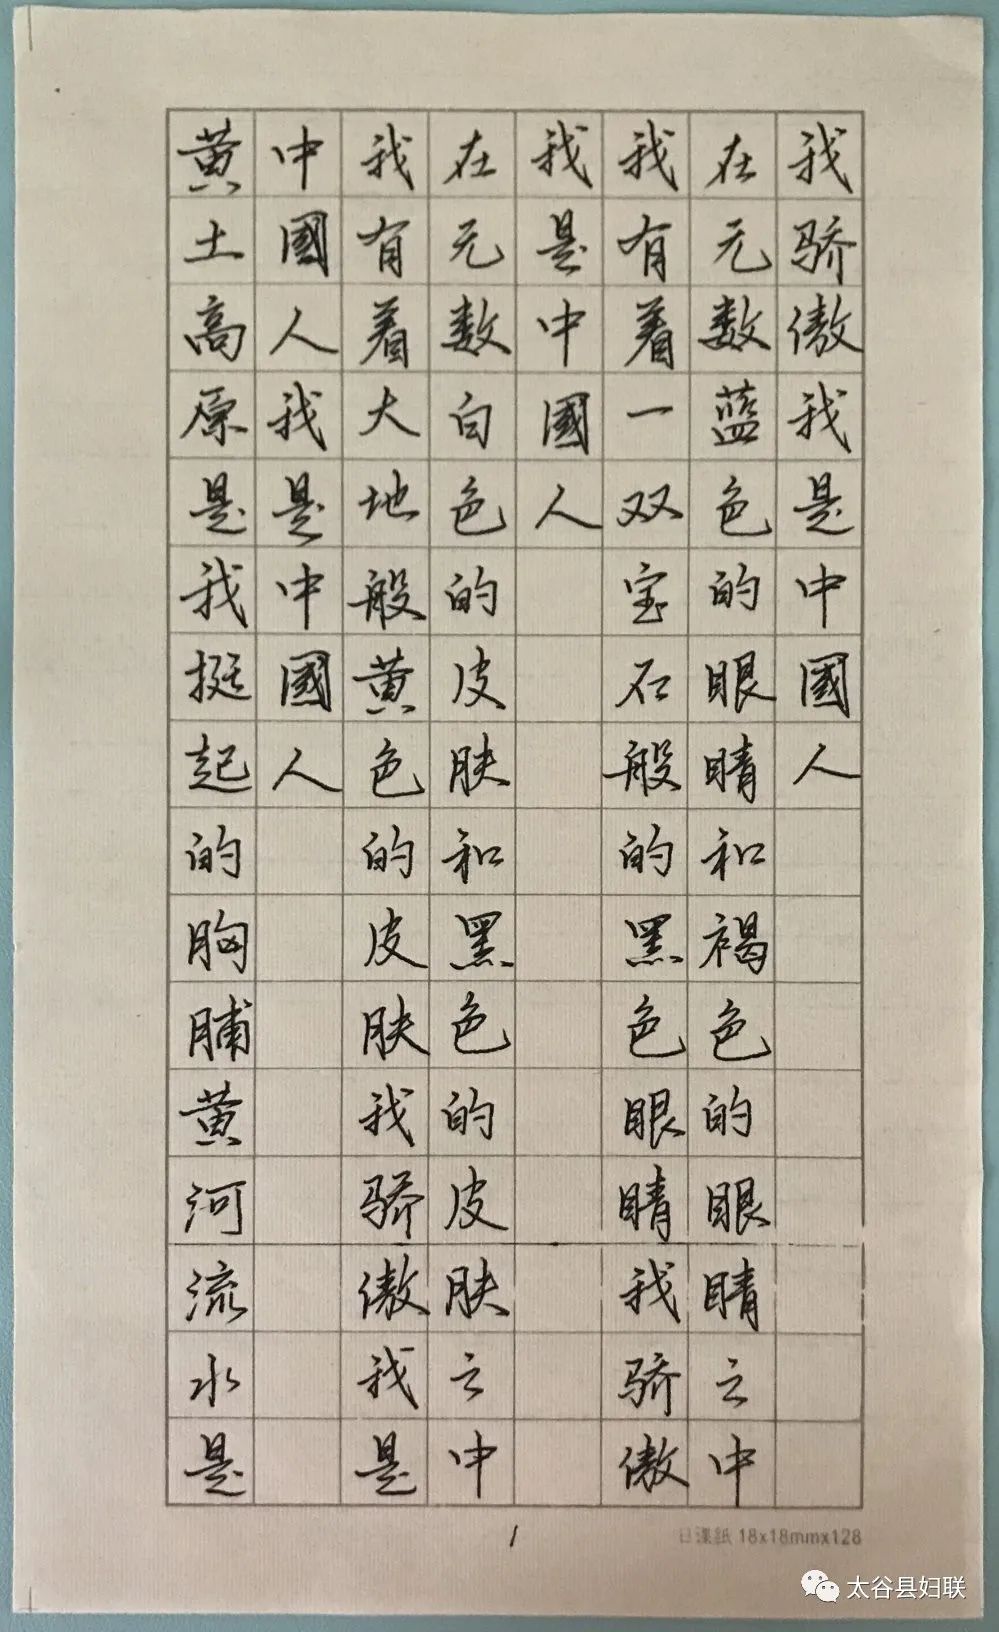 我骄傲我是中國人
在无数蓝色的眼睛和褐色的眼睛之中
我有着一双宝石般的黑色眼睛我骄傲
我是中國人
在无数白色的皮肤和黑色的皮肤之中
我有着大地般黄色的皮肤我骄傲我是
中國人我是中國人
黄土高原是我挺起的胸脯黄河流水是
1
日課紙 18x18mmx128
太谷县妇联